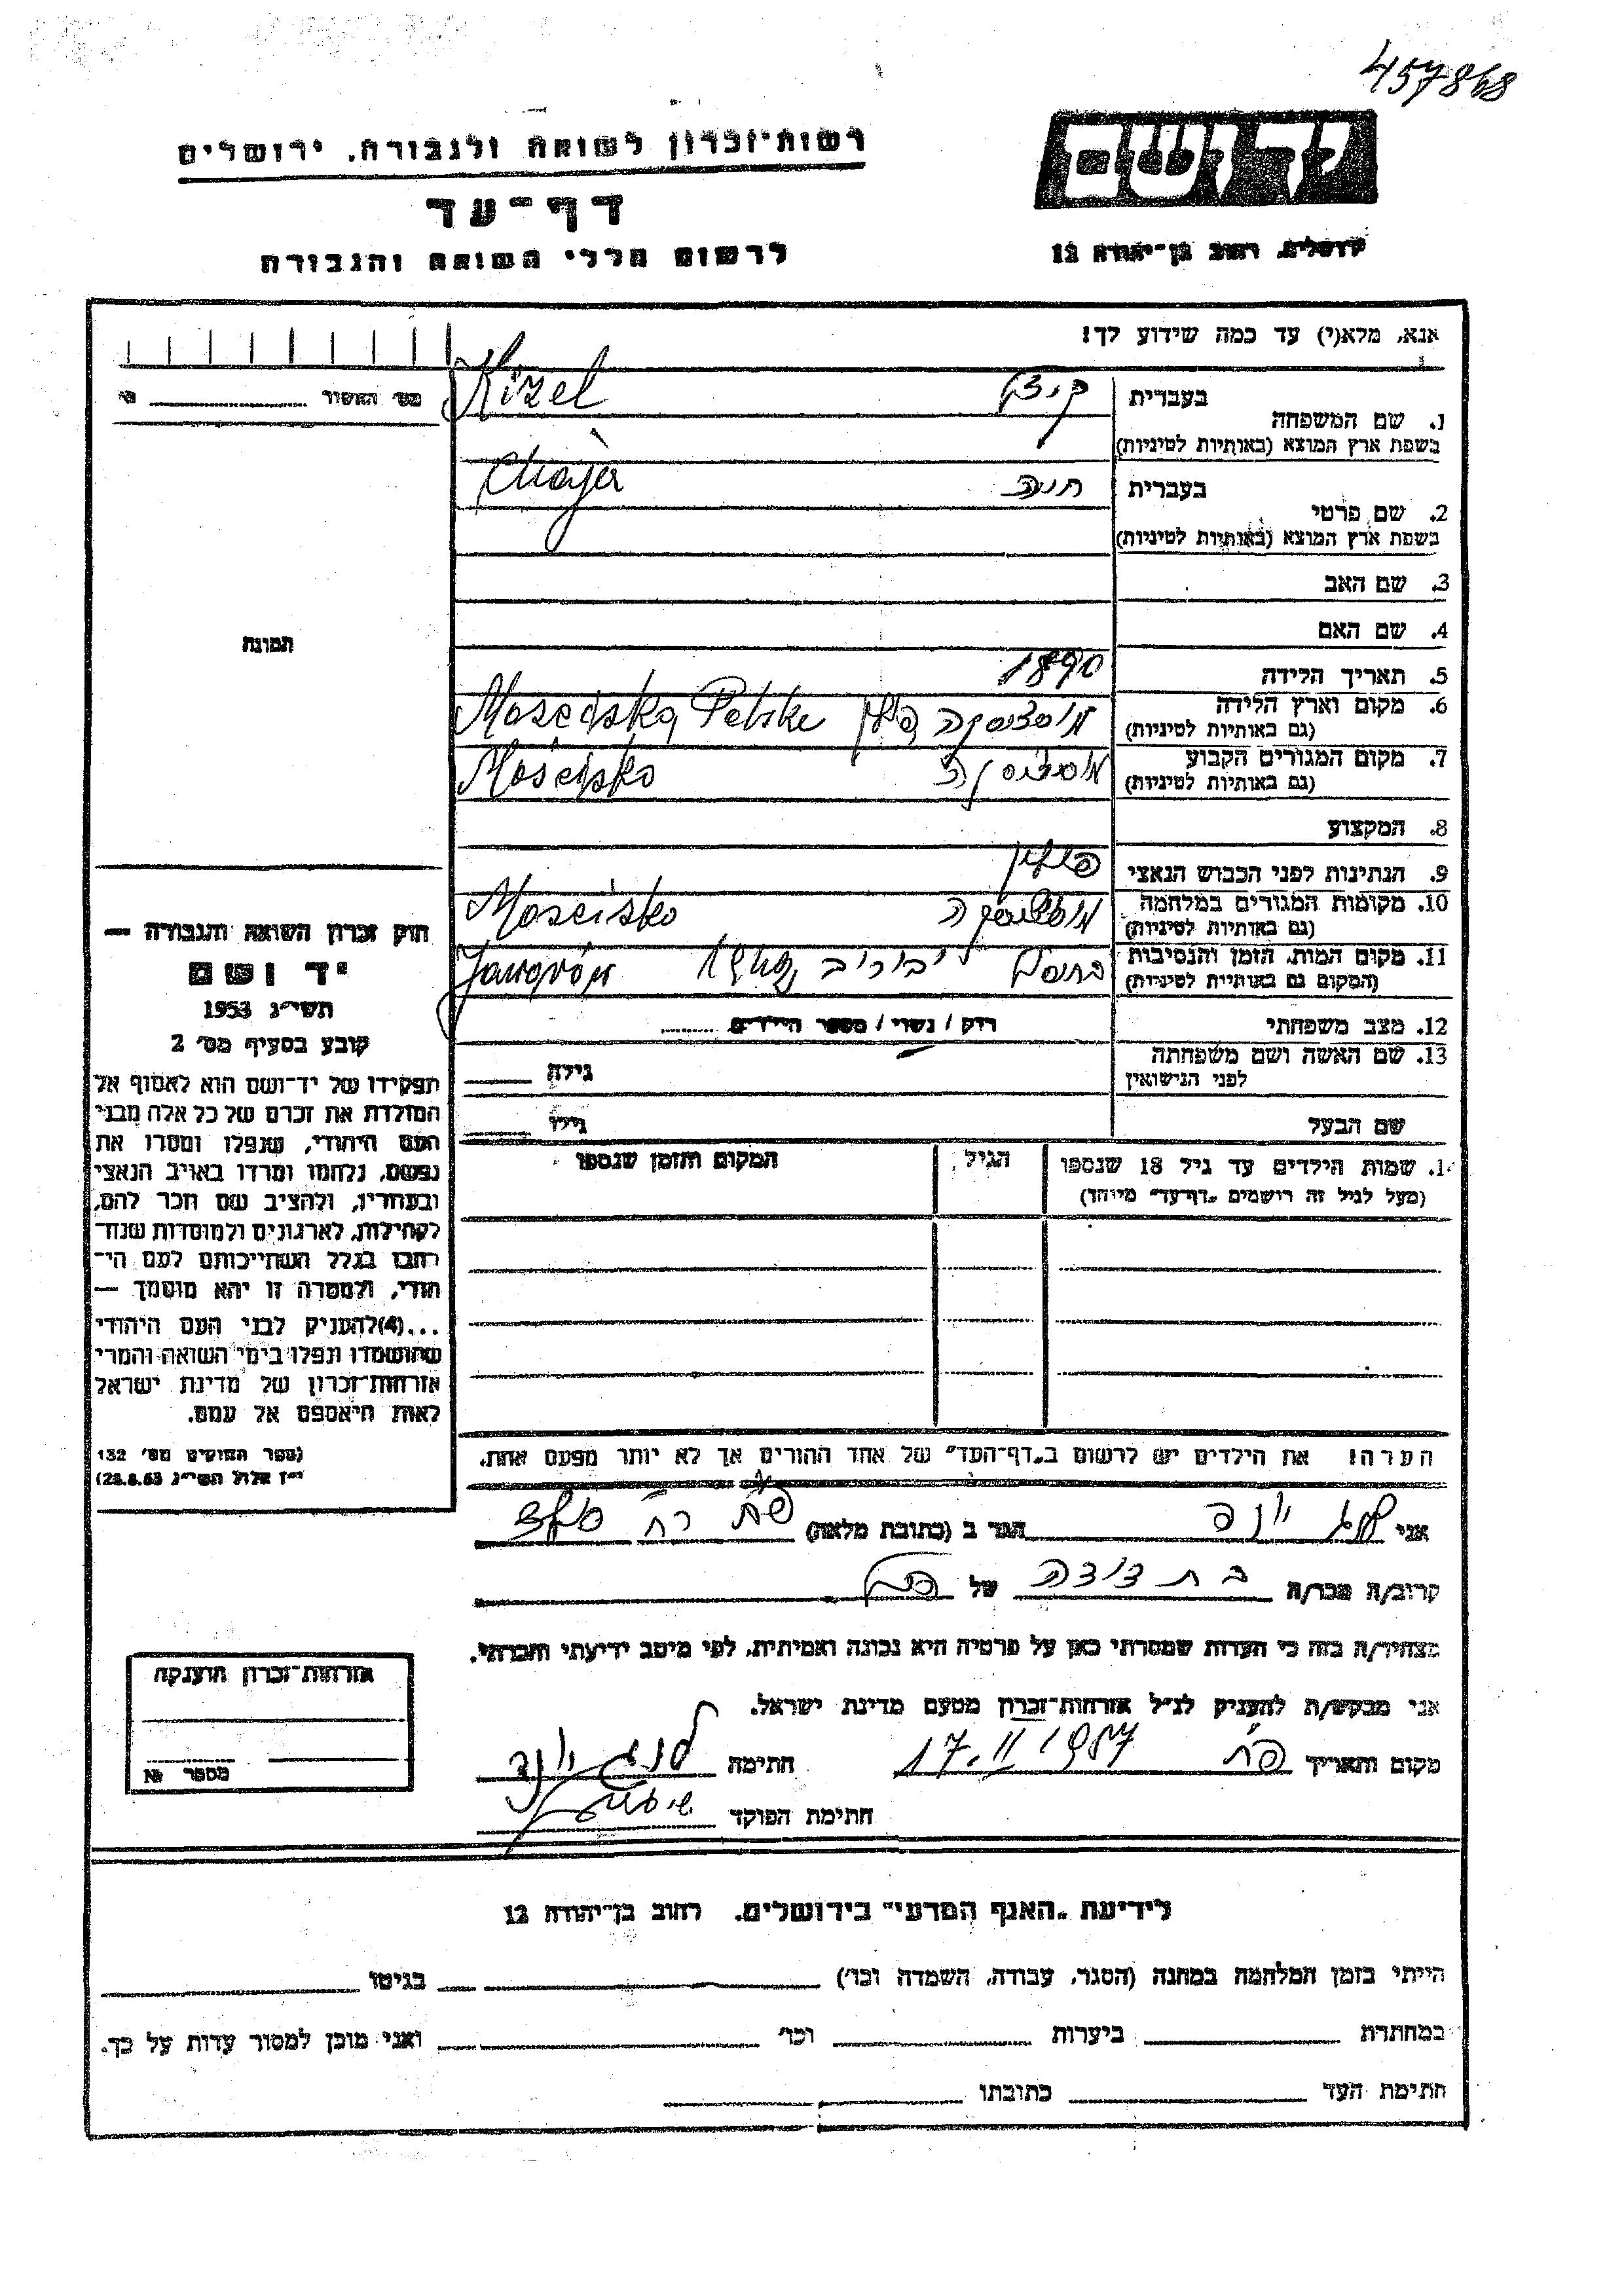 457868
רשות־זכרון לשואה ולגבורה. ירושלים
יד ושם
דף־עד
לרשום חללי השואה והגבורה
ירושלים, רחוב בן־יהודה 12
אנא, מלא(י) עד כמה שידוע לך!
מס׳ האשור №
1. שם המשפחה
בעברית
Kizel
בשפת ארץ המוצא (באותיות לטיניות)
2. שם פרטי
בעברית חיה
Chaja
בשפת ארץ המוצא (באותיות לטיניות)
3. שם האב
4. שם האם
תמונה
5. תאריך הלידה 1890
6. מקום וארץ הלידה
(גם באותיות לטיניות)
7. מקום המגורים הקבוע
(גם באותיות לטיניות)
8. המקצוע
9. הנתינות לפני הכבוש הנאצי פולין
10. מקומות המגורים במלחמה
(גם באותיות לטיניות)
11. מקום המות, הזמן והנסיבות
(המקום גם באותיות לטיניות)
12. מצב משפחתי רוק / נשוי / מספר הילדים
13. שם האשה ושם משפחתה
לפני הנישואין גילה
שם הבעל גילו
חוק זכרון השואה והגבורה —
יד ושם
תשי״ג 1953
קובע בסעיף מס׳ 2
תפקידו של יד־ושם הוא לאסוף אל
המולדת את זכרם של כל אלה מבני
העם היהודי, שנפלו ומסרו את
נפשם, נלחמו ומרדו באויב הנאצי
ובעוזריו, ולהציב שם וזכר להם,
לקהילות, לארגונים ולמוסדות שנח־
רבו בגלל השתייכותם לעם היה־
ודי, ולמטרה זו יהא מוסמך —
...(4)להעניק לבני העם היהודי
שהושמדו ונפלו בימי השואה והמרי
אזרחות־זכרון של מדינת ישראל
לאות היאספם אל עמם.
(ספר החוקים מס׳ 132
י״ז אלול תשי״ג 28.8.53)
14. שמות הילדים עד גיל 18 שנספו
(מעל לגיל זה רושמים „דף־עד״ מיוחד)
הגיל
המקום והזמן שנספו
הערה! את הילדים יש לרשום ב„דף־העד״ של אחד ההורים אך לא יותר מפעם אחת.
אני הגר ב (כתובת מלאה)
קרוב/ה מכר/ה בת דודה של
מצהיר/ה בזה כי העדות שמסרתי כאן על פרטיה היא נכונה ואמיתית, לפי מיטב ידיעתי והכרתי.
אני מבקש/ת להעניק לנ״ל אזרחות־זכרון מטעם מדינת ישראל.
מקום ותאריך 17.II 1957 חתימה
חתימת הפוקד
אזרחות־זכרון הוענקה
מספר №
לידיעת „האגף המדעי״ בירושלים. רחוב בן־יהודה 12
הייתי בזמן המלחמה במחנה (הסגר, עבודה, השמדה וכו׳) בגיטו
במחתרת ביערות וכו׳ ואני מוכן למסור עדות על כך.
חתימת העד כתובתו